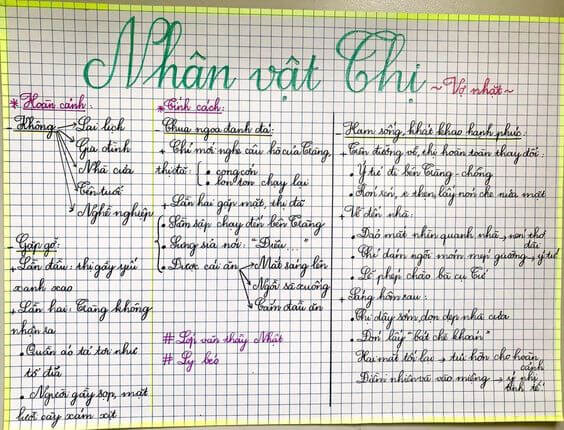 Nhân vật Thị
~ Vợ nhặt ~
* Hoàn cảnh:
- Không
Lai lịch
Gia đình
Nhà cửa
Tên tuổi
Nghề nghiệp
- Gặp gỡ:
+ Lần đầu: thị gầy yếu
xanh xao
+ Lần hai: Tràng không
nhận ra
• Quần áo tả tơi như
tổ đỉa
• Người gầy sọp, mặt
lưỡi cày xám xịt
* Tính cách:
- Chua ngoa đanh đá:
+ Chỉ mới nghe câu hò của Tràng,
thị đã:
• cong cớn
• lon ton chạy lại
+ Lần hai gặp mặt, thị đã
• Sầm sập chạy đến bên Tràng
• Sưng sỉa nói: "Điêu..."
• Được cái ăn
Mắt sáng lên
Ngồi sà xuống
Cắm đầu ăn
# Lớp văn thầy Nhật
# Ly béo
- Ham sống, khát khao hạnh phúc:
+ Trên đường về, thị hoàn toàn thay đổi:
• Ý tứ đi bên Tràng - chồng
• Rón rén, e thẹn, lấy nón che nửa mặt
+ Về đến nhà:
• Đảo mắt nhìn quanh nhà, nén thở
dài
• Chỉ dám ngồi mớm mép giường, ý tứ
• Lễ phép chào bà cụ Tứ
+ Sáng hôm sau:
• Thị dậy sớm, dọn dẹp nhà cửa
• Đón lấy "bát chè khoán"
Hai mắt tối lại → tủi hờn cho hoàn
cảnh
Điềm nhiên và vào miệng → ý nhị
tinh tế.